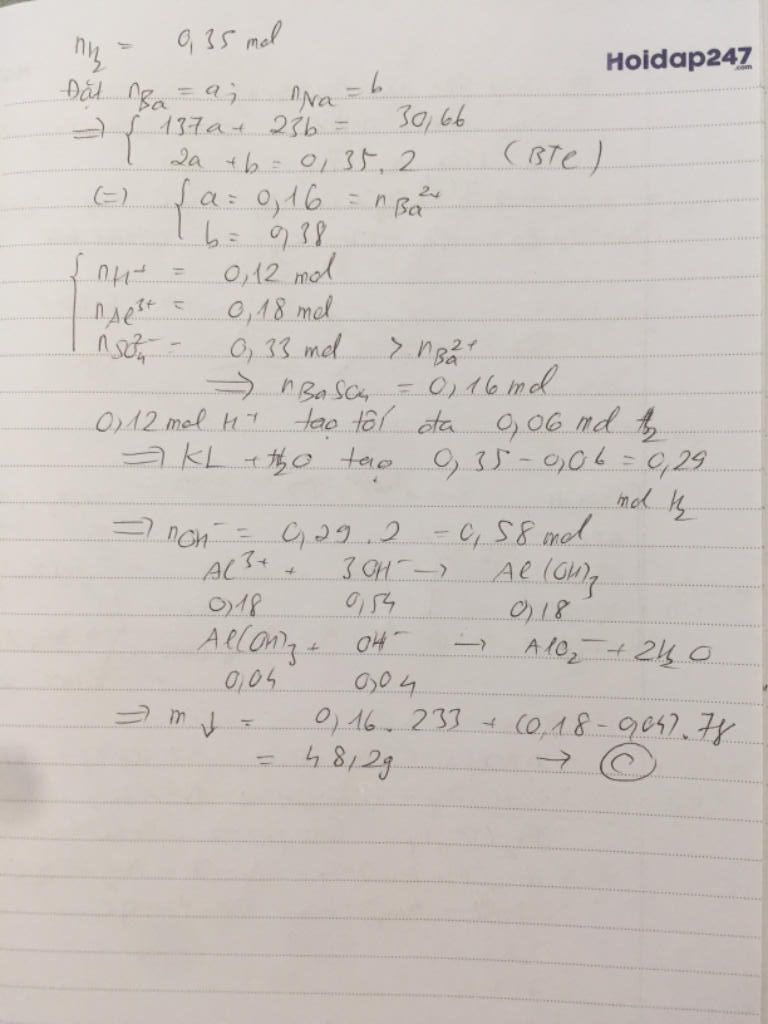 nH2 = 0,35 mol
Hoidap247
.com
Đặt nBa = a; nNa = b
=> { 137a + 23b = 30,66
2a + b = 0,35.2 (BTe)
(=) { a = 0,16 = nBa2+
b = 0,38
{ nH+ = 0,12 mol
nAl3+ = 0,18 mol
nSO42- = 0,33 mol > nBa2+
=> nBaSO4 = 0,16 mol
0,12 mol H+ tạo tối đa 0,06 mol H2
=> KL + H2O tạo 0,35 - 0,06 = 0,29
mol H2
=> nOH- = 0,29.2 = 0,58 mol
Al3+ + 3OH- -> Al(OH)3
0,18 0,54 0,18
Al(OH)3 + OH- -> AlO2- + 2H2O
0,04 0,04
=> m↓ = 0,16.233 + (0,18 - 0,04).78
= 48,2g -> C